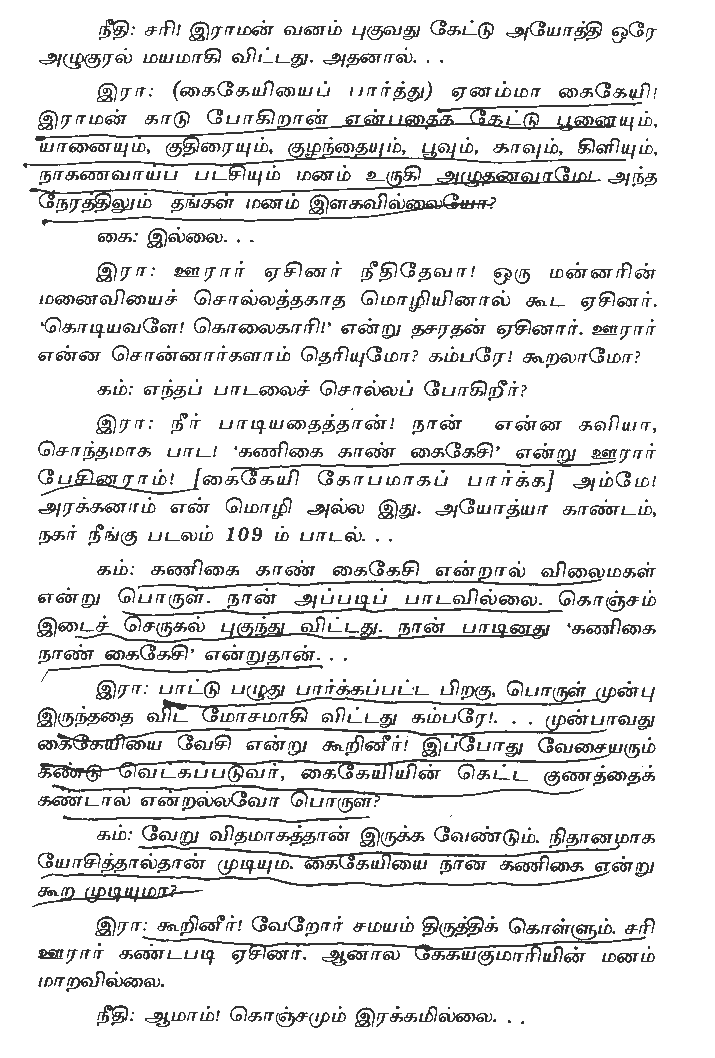 நீதி: சரி! இராமன் வனம் புகுவது கேட்டு அயோத்தி ஒரே
அழுகுரல் மயமாகி விட்டது. அதனால். . .
இரா: (கைகேயியைப் பார்த்து) ஏனம்மா கைகேயி!
இராமன் காடு போகிறான் என்பதைக் கேட்டு பூனையும்,
யானையும், குதிரையும், குழந்தையும், பூவும், காவும், கிளியும்,
நாகணவாய்ப் பட்சியும் மனம் உருகி அழுதனவாமே. அந்த
நேரத்திலும் தங்கள் மனம் இளகவில்லையோ?
கை: இல்லை. . .
இரா: ஊரார் ஏசினர் நீதிதேவா! ஒரு மன்னரின்
மனைவியைச் சொல்லத்தகாத மொழியினால் கூட ஏசினர்.
'கொடியவளே! கொலைகாரி!' என்று தசரதன் ஏசினார். ஊரார்
என்ன சொன்னார்களாம் தெரியுமோ? கம்பரே! கூறலாமோ?
கம்: எந்தப் பாடலைச் சொல்லப் போகிறீர்?
இரா: நீர் பாடியதைத்தான்! நான் என்ன கவியா,
சொந்தமாக பாட! 'கணிகை காண் கைகேசி' என்று ஊரார்
பேசினராம்! [கைகேயி கோபமாகப் பார்க்க] அம்மே!
அரக்கனாம் என் மொழி அல்ல இது. அயோத்யா காண்டம்,
நகர் நீங்கு படலம் 109 ம் பாடல். . .
கம்: கணிகை காண் கைகேசி என்றால் விலைமகள்
என்று பொருள். நான் அப்படிப் பாடவில்லை. கொஞ்சம்
இடைச் செருகல் புகுந்து விட்டது. நான் பாடினது 'கணிகை
நாண் கைகேசி' என்றுதான். . .
இரா: பாட்டு பழுது பார்க்கப்பட்ட பிறகு, பொருள் முன்பு
இருந்ததை விட மோசமாகி விட்டது கம்பரே!. . . முன்பாவது
கைகேயியை வேசி என்று கூறினீர்! இப்போது வேசையரும்
கண்டு வெட்கப்படுவர், கைகேயியின் கெட்ட குணத்தைக்
கண்டால் என்றல்லவோ பொருள்?
கம்: வேறு விதமாகத்தான் இருக்க வேண்டும். நிதானமாக
யோசித்தால்தான் முடியும். கைகேயியை நான் கணிகை என்று
கூற முடியுமா?
இரா: கூறினீர்! வேறோர் சமயம் திருத்திக் கொள்ளும். சரி
ஊரார் கண்டபடி ஏசினர். ஆனால் கேகயகுமாரியின் மனம்
மாறவில்லை.
நீதி: ஆமாம்! கொஞ்சமும் இரக்கமில்லை. . .